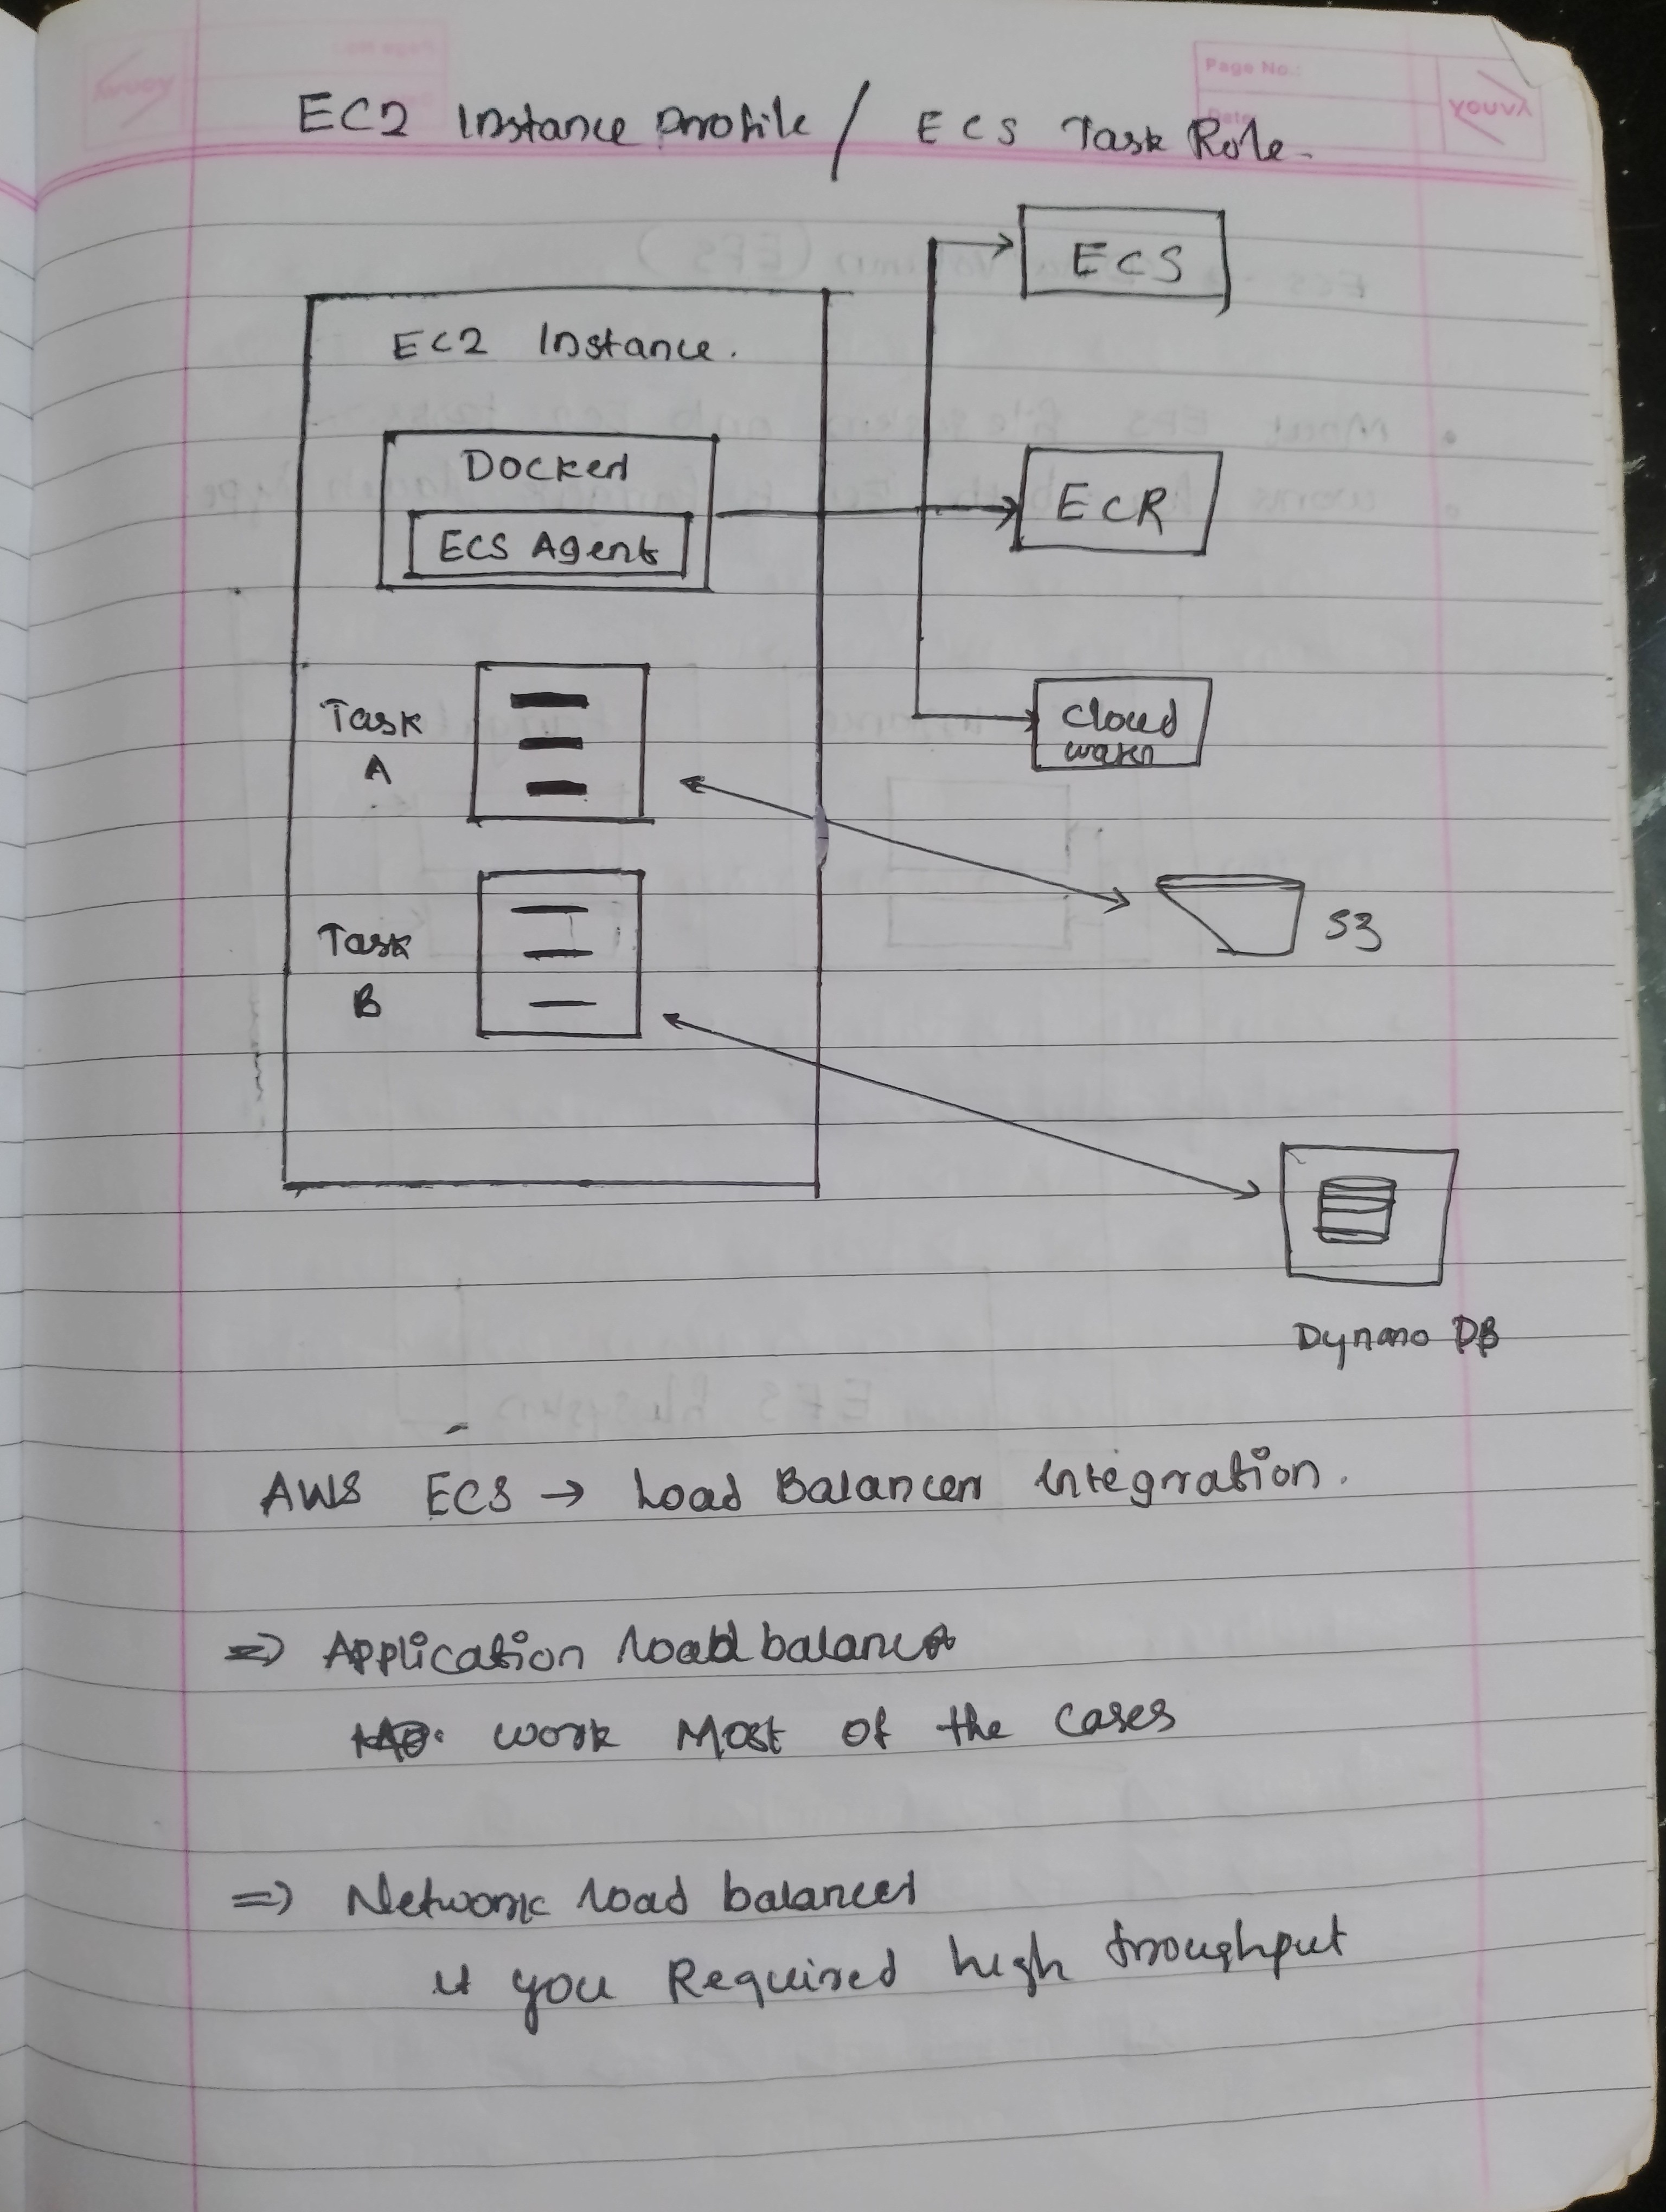 Page No.:
Date
YOUVA
EC2 Instance Profile / ECS Task Role.
ECS
EC2 Instance.
Docker
ECS Agent
ECR
Task
A
Cloud
S3
Task
B
Dynamo DB
AWS ECS → Load Balancer Integration.
=> Application load balancer
work Most of the cases
=> Network load balancer
if you Required high throughput